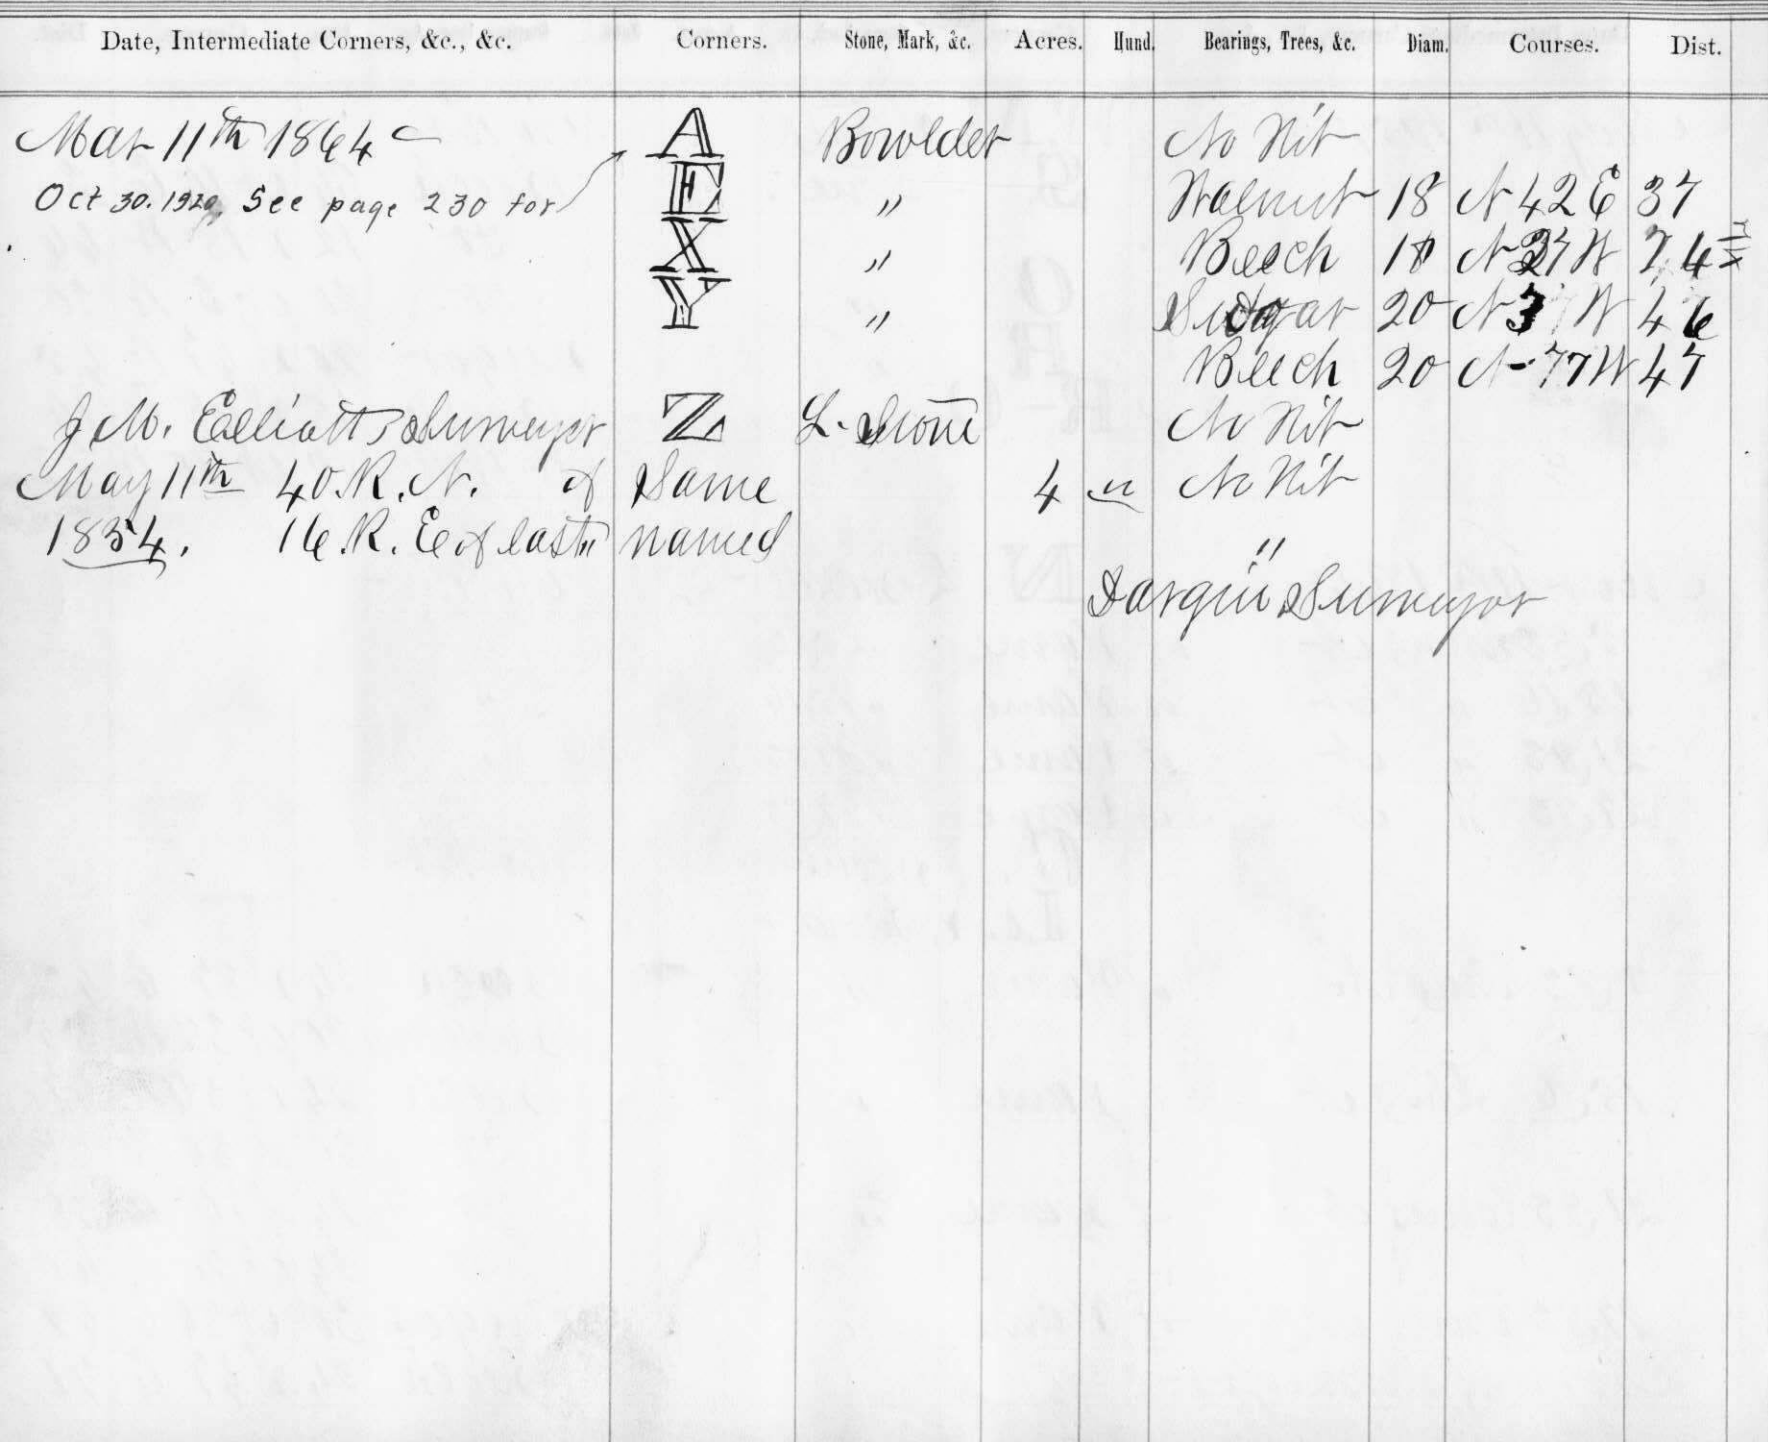 Date, Intermediate Corners, &c., &c. Corners. Stone, Mark, &c. Acres. Hund. Bearings, Trees, &c. Diam. Courses. Dist.
Mar 11th 1864 A Bowlder No Wit
Oct 30. 1920. See page 230 for E " Walnut 18 N 42 E 37
X " Beech 18 N 27 W 74
Y " Sugar 20 N 37 W 46
Beech 20 N 77 W 47
J. M. Elliott Surveyor Z L. Stone No Wit
May 11th 40.R. N. of Same 4 No Wit
1854. 16.R. E of last " named "
Surveyor